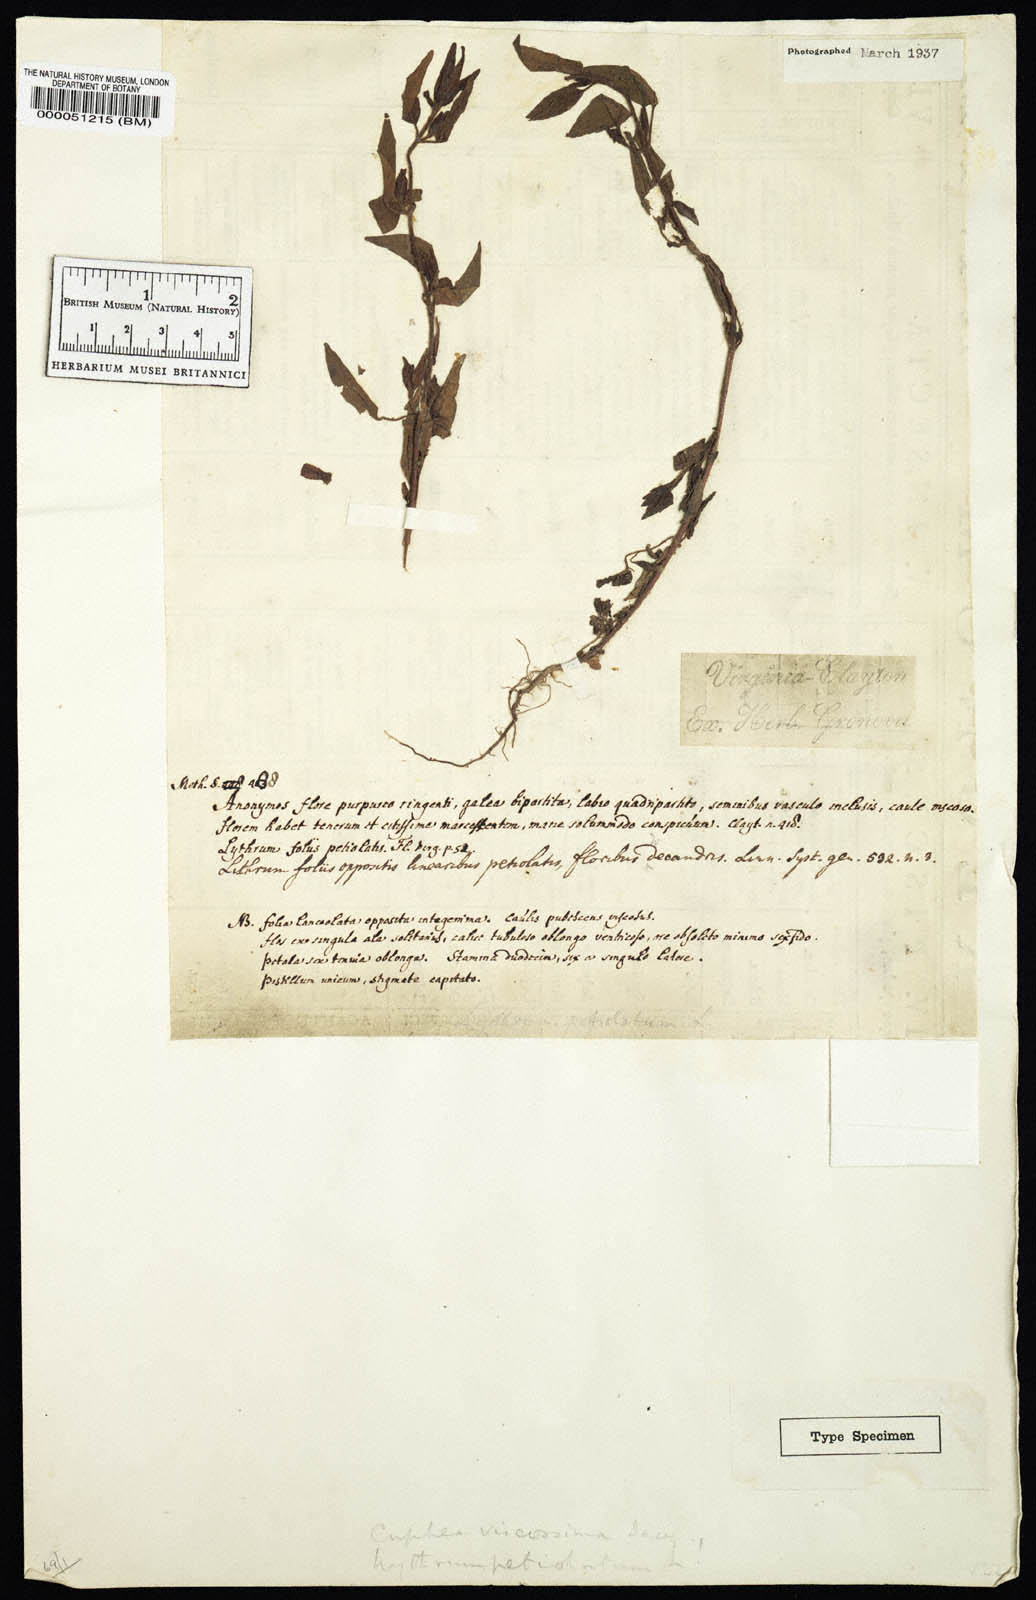 Photographed March 1937
THE NATURAL HISTORY MUSEUM, LONDON
DEPARTMENT OF BOTANY
000051215 (BM)
1 2
BRITISH MUSEUM (NATURAL HISTORY)
1 2 3 4 5
HERBARIUM MUSEI BRITANNICI
Virginia-Clayton
Ex. Herb. Gronovii
Anonymos flore purpureo ringenti, galea bipartita, labio quadripartito, seminibus vasculo inclusis, caule viscoso.
florem habet tenerum et citissime marcescentem, mane solummodo conspicuum. Clayt. n. 418.
Lythrum foliis petiolatis. Fl. Virg. p. 52.
Lithrum foliis oppositis linearibus petiolatis, floribus decandris. Linn. Syst. gen. 532. n. 3.
NB. folia lanceolata opposita integerrima. Caulis pubescens viscosus.
flos ex singula ala solitarius, calice tubuloso oblongo ventricoso, ore obsoleto minimo sexfido.
petala sex tenuia oblonga. Stamina duodecim, sex a singulo latere.
pistillum unicum, stigmate capitato.
petiolatum L
Type Specimen
Cuphea viscossima Jacq.,
Lythrum petiolatum L.
69/1